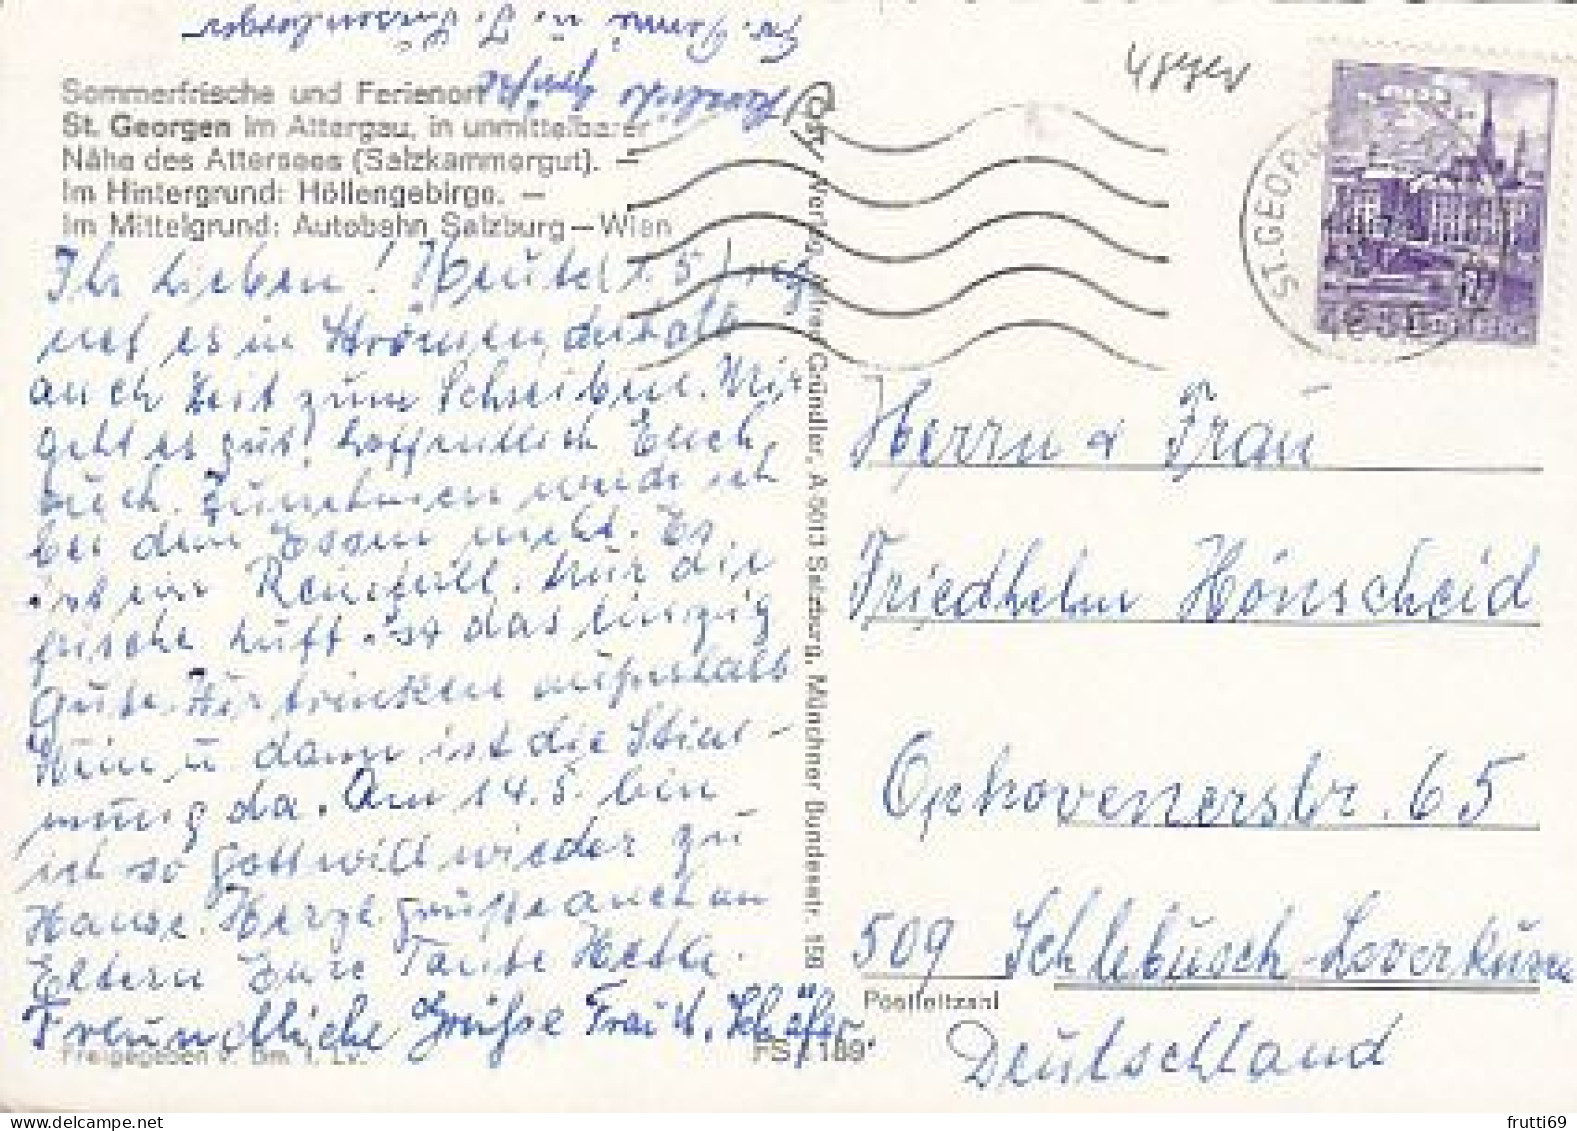 Sommerfrische und Ferienort
St. Georgen im Attergau, in unmittelbarer
Nähe des Attersees (Salzkammergut). —
Im Hintergrund: Höllengebirge. —
Im Mittelgrund: Autobahn Salzburg—Wien
Ihr Lieben! Heute (1.5.) reg-
net es in Strömen, deshalb
auch Zeit zum Schreiben. Mir
geht es gut, hoffentlich Euch
auch. Zunehmen werde ich
bei dem Essen nicht. Es
ist ein Reinfall. Nur die
frische Luft ist das einzig
Gute. Wir trinken außerhalb
Wein u dann ist die Stim-
mung da. Am 14.5. bin
ich so Gott will wieder zu
Hause. Herzl. Grüße auch an
Eltern Eure Tante Hetti.
Freundliche Grüße Frau H. Schäfer
Herzliche Grüße
Freigegeben v. Bm. f. Lv.
FS / 189*
Verlag Alfred Gründler, A-5013 Salzburg, Münchner Bundesstr. 156
ST.GEORG
Herrn & Frau
Friedhelm Hönscheid
Ophovenerstr. 65
509 Schlebusch-Leverkusen
Postleitzahl
Deutschland
frutti69